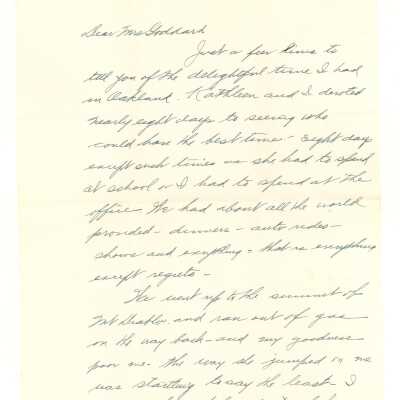 Dear Mrs Goddard
Just a few lines to
tell you of the delightful time I had
in Oakland. Kathleen and I devoted
nearly eight days to seeing who
could have the best time - Eight days
except such times as she had to spend
at school or I had to spend at the
office. We had about all the world
provided - dinners - auto rides -
shows and everything - that is everything
except regrets -
We went up to the summit of
Mt Diablo and ran out of gas
on the way back - and my goodness
poor me - the way she jumped on me
was startling to say the least. I